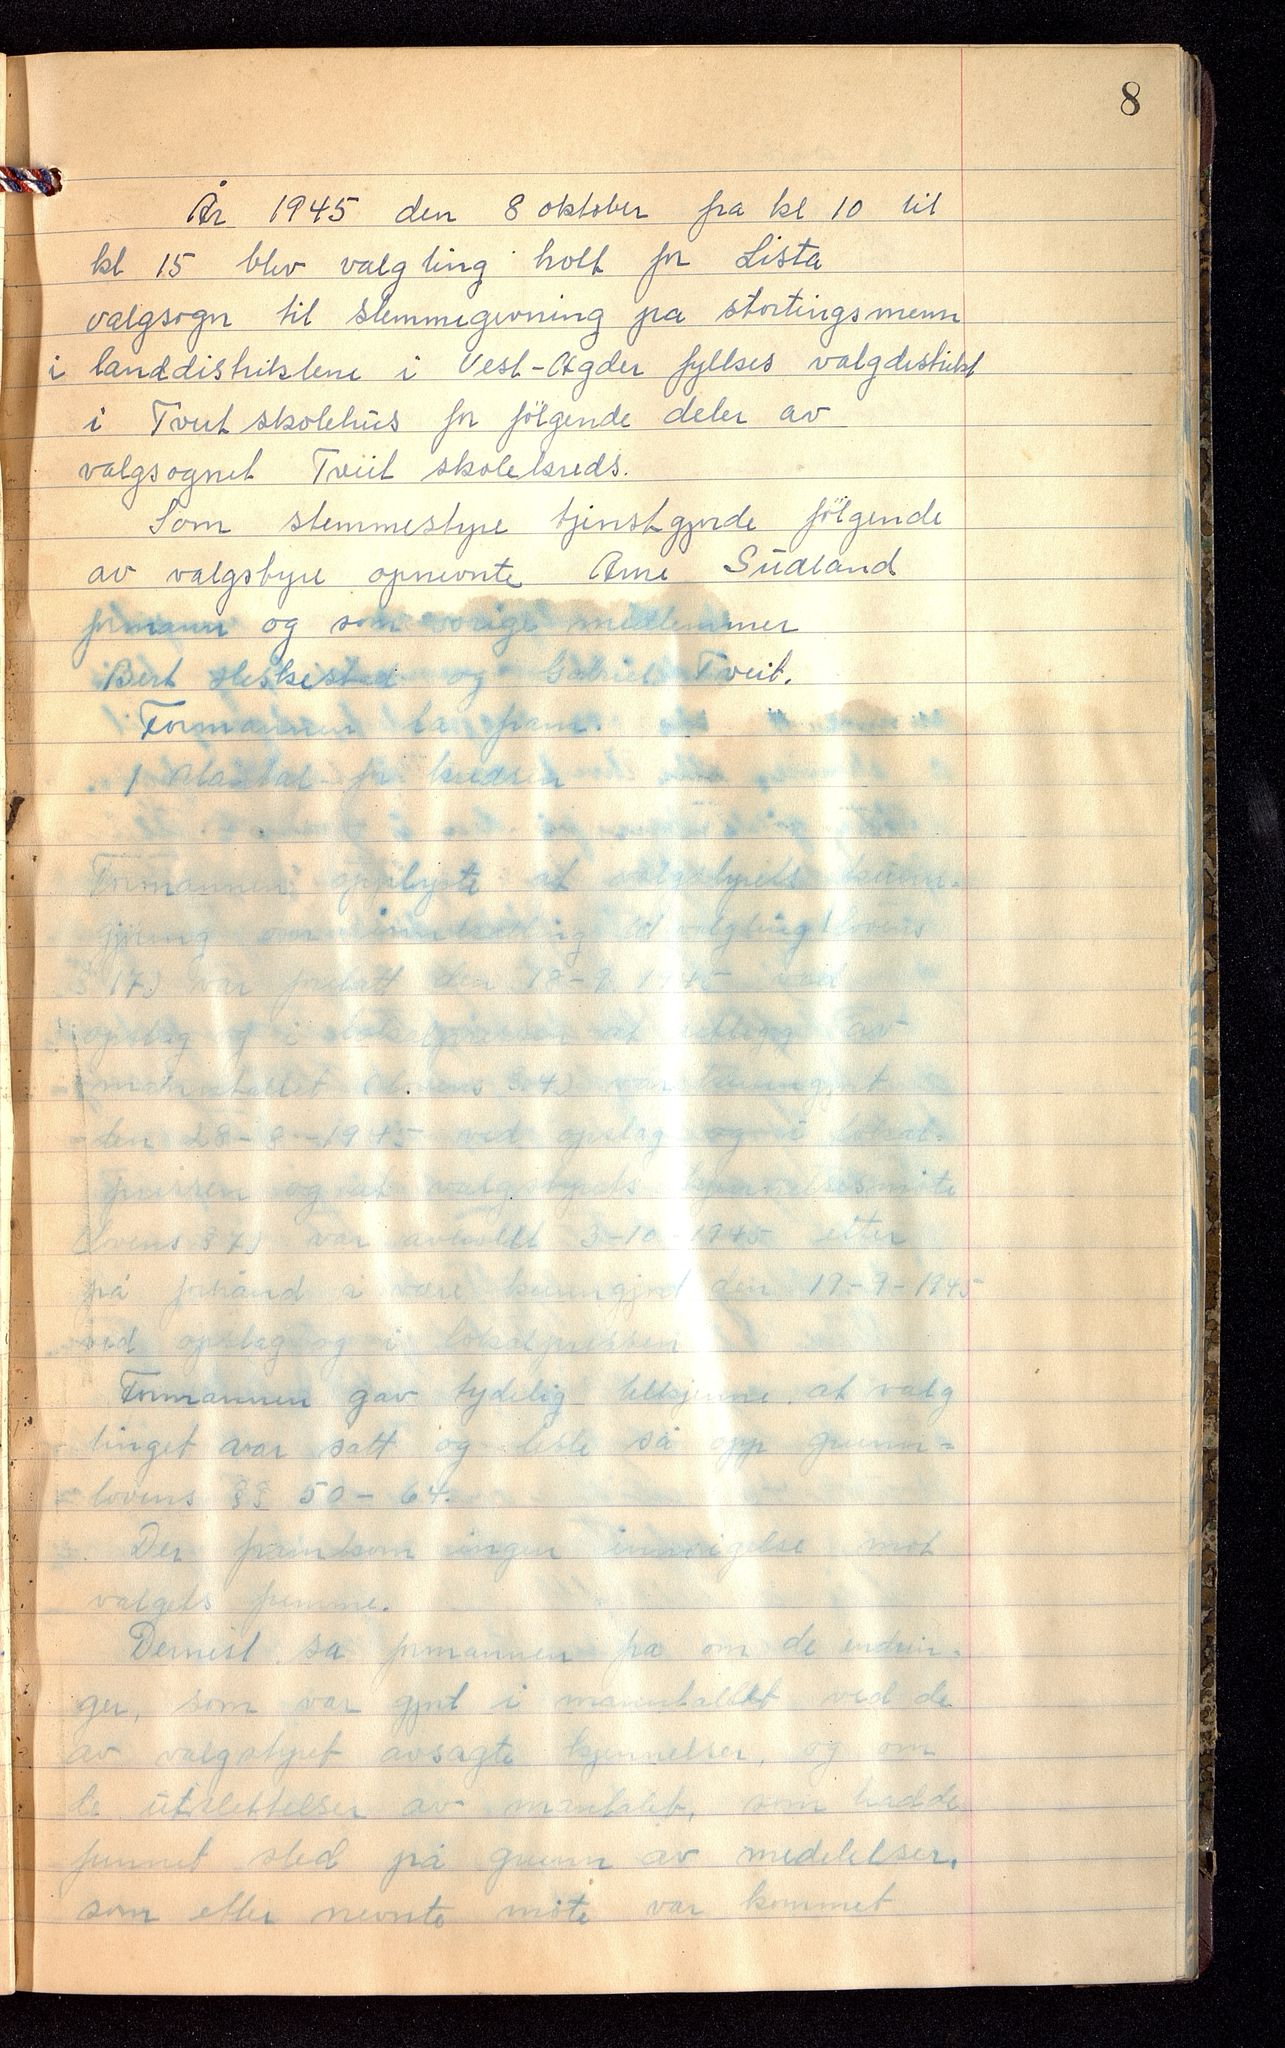 8
År 1945 den 8 oktober fra kl 10 til
kl 15 blev valgting holt for Lista
valgsogn til stemmegivning pa stortingsmenn
i landdistriktene i Vest-Agder fylkes valgdistrikt
i Tveit skolehus for følgende deler av
valgsognet Tveit skolekreds.
Som stemmestyre tjenstgjorde følgende
av valgstyre opnevnte Arne Sudland
formann og som øvrige medlemmer
Bert Sleskestad og Gabriel Tveit.
Formannen la fram.
1 Mantal for kredsen
Formannen opplyste at valgstyrets kunn-
gjøring om innkalling til valgting (lovens
§ 17) var foretatt den 18-9 1945 ved
opslag og i lokalpressen at utlegg av
manntallet (lovens § 4) var kunngjort
den 28-8-1945 ved opslag og i lokal-
pressen og at valgstyrets kjennelsesmøte
(lovens § 7) var avholdt 3-10-1945 etter
på forhånd å være kunngjord den 19-9-1945
ved opslag og i lokalpressen
Formannen gav tydelig tilkjenne at valg
tinget var satt og leste så opp grunn-
lovens §§ 50-64.
Der framkom ingen innvigelse mot
valgets fremme.
Dernest sa formannen fra om de endrin-
ger, som var gjort i manntallet ved de
av valgstyret avsagte kjennelser, og om
de utslettelser av mantalet, som hadde
funnet sted på grunn av medelelser,
som etter nevnte møte var kommet